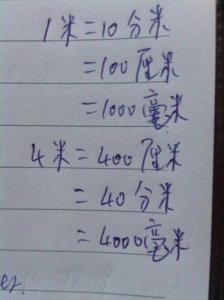 1米=10分米
=100厘米
=1000毫米
4米=400厘米
=40分米
=4000毫米